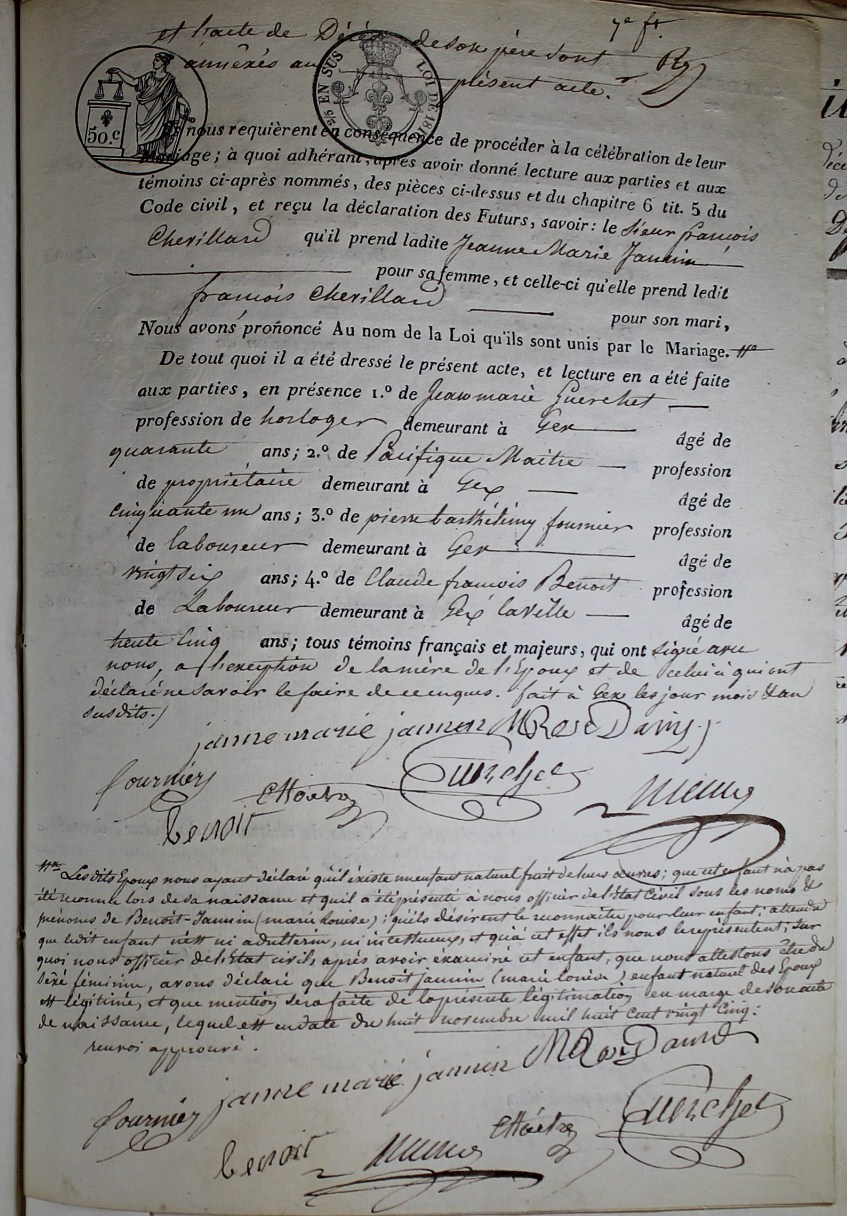 7e ft.
et l'acte de Décès de son père sont
annéxés au présent acte.
50.c
25 EN SUS LOI DE 181
Ils nous requièrent en conséquence de procéder à la célébration de leur
Mariage; à quoi adhérant, après avoir donné lecture aux parties et aux
témoins ci-après nommés, des pièces ci-dessus et du chapitre 6 tit. 5 du
Code civil, et reçu la déclaration des Futurs, savoir: le Sieur françois
Chevillard qu'il prend ladite Jeanne Marie Jannin
pour sa femme, et celle-ci qu'elle prend ledit
françois Chevillard pour son mari,
Nous avons prononcé Au nom de la Loi qu'ils sont unis par le Mariage.
De tout quoi il a été dressé le présent acte, et lecture en a été faite
aux parties, en présence 1.º de Jean marie Guerchet
profession de horloger demeurant à Gex âgé de
quarante ans; 2.º de Pacifique Maitre profession
de propriétaire demeurant à Gex âgé de
cinquante un ans; 3.º de pierre barthélémy fournier profession
de laboureur demeurant à Gex âgé de
vingt six ans; 4.º de Claude françois Benoit profession
de Laboureur demeurant à Gex la ville âgé de
trente Cinq ans; tous témoins français et majeurs, qui ont signé avec
nous, a l'exception de la mère de l'Epoux et de celui ci qui ont
déclaré ne savoir le faire de ce enquis. fait à Gex les jour mois & an
susdits./
janne marie jannin M Rose David
fournier Guerchet
Benoit Maitre
Les dits Epoux nous ayant déclaré qu'il éxiste un enfant naturel fruit de leurs œuvres; que cet enfant n'a pas
été reconnu lors de sa naissance et qu'il a été présenté à nous officier de l'Etat Civil sous les noms &
prénoms de Benoit-Jannin (marie Louise); qu'ils désirent le reconnaitre pour leur enfant; attendu
que ledit enfant n'est ni adulterin, ni incestueux, et qu'à cet effet ils nous le représentent; Sur
quoi nous officier de l'Etat civil, après avoir éxaminé cet enfant, que nous attestons être du
Séxe féminin, avons déclaré que Benoit Jannin (marie louise) enfant naturel des Epoux
est légitimé, et que mention sera faite de la présente légitimation en marge de son acte
de naissance, lequel est en date du huit novembre mil huit cent vingt Cinq:
renvoi approuvé.
janne marie jannin M Rose David
fournier Maitre Guerchet
Benoit